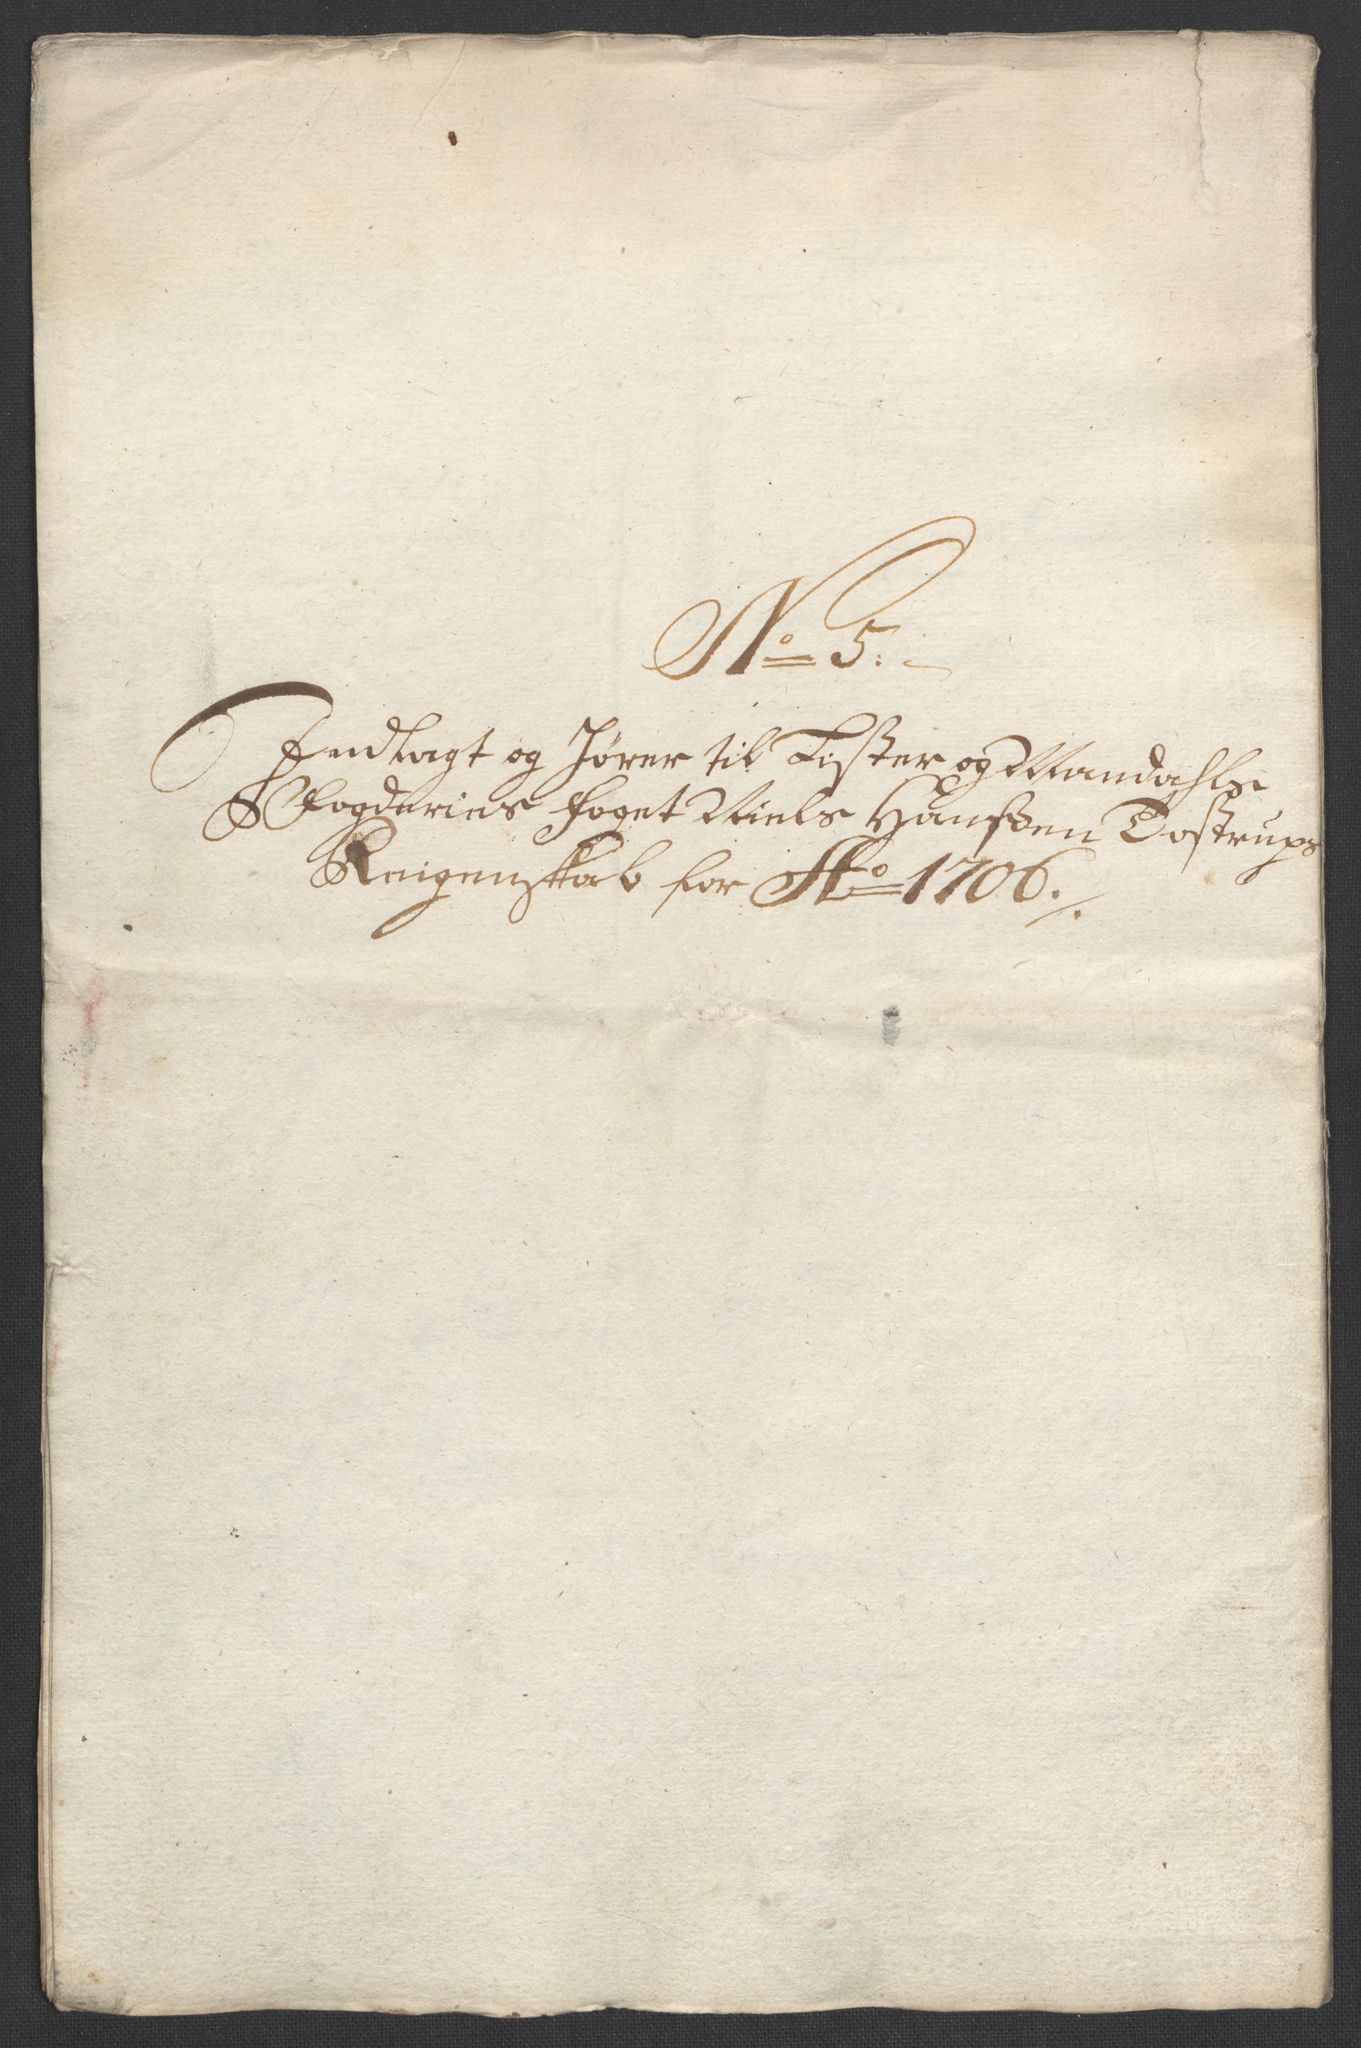 No 5.
Indlagt og hører til Lister og Mandahls
Fogderies foget Niels Hanssen Tostrups
Reigenskab for Ao 1706.